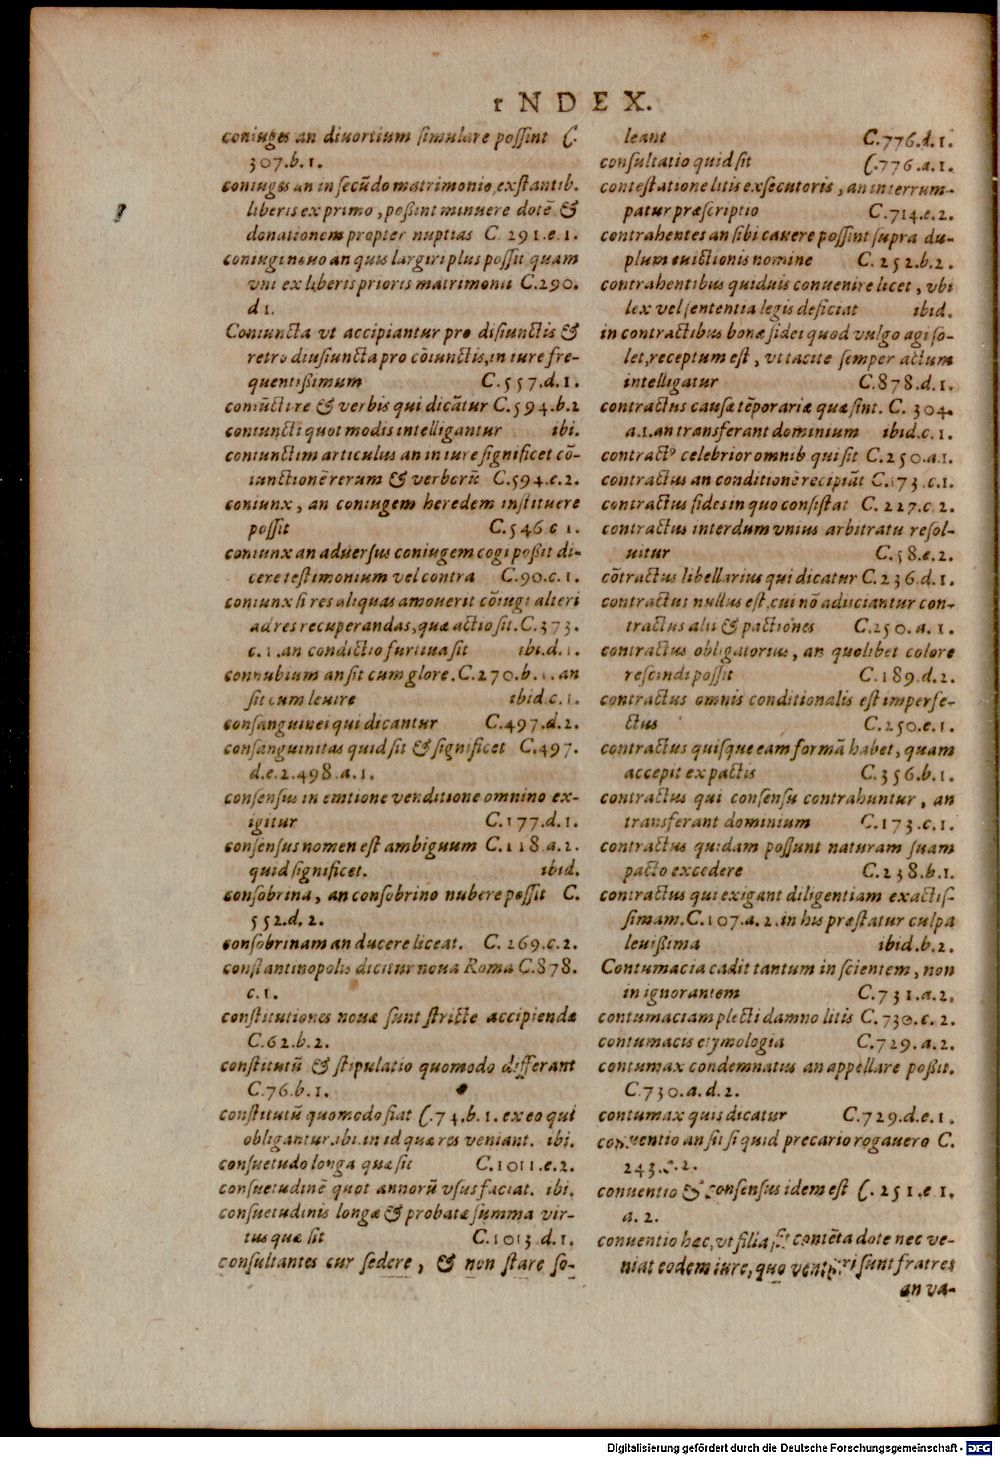 INDEX.
coniuges an diuortium ſimulare poſſint C.
307.b.1.
coniuges an in ſecũdo matrimonio, exſtantib.
liberis ex primo, poßint minuere dotẽ &
donationem propter nuptias C 291.e.1.
coniugi nouo an quis largiri plus poſſit quam
vni ex liberis prioris matrimonii C.290.
d 1.
Coniuncta vt accipiantur pro diſiunctis &
retro diuſiuncta pro cõiunctis, in iure fre-
quentißimum C.557.d.1.
coniũcti re & verbis qui dicãtur C.594.b.2
coniuncti quot modis intelligantur ibi.
coniunctim articulus an in iure ſignificet cõ-
iunctionẽ rerum & verborũ C.594.e.2.
coniunx, an coniugem heredem inſtituere
poſſit C.546 c 1.
coniunx an aduerſus coniugem cogi poßit di-
cere teſtimonium vel contra C.90.c.1.
coniunx ſi res aliquas amouerit cõiugi alteri
ad res recuperandas, quæ actio ſit. C.373.
c.1.an condictio furtiua ſit ibi.d.1.
connubium an ſit cum glore. C.270.b.1.an
ſit cum leuire ibid.c.1.
conſanguinei qui dicantur C.497.d.2.
conſanguinitas quid ſit & ſignificet C.497.
d.e.2.498.a.1.
conſenſus in emtione venditione omnino ex-
igitur C.177.d.1.
conſenſus nomen eſt ambiguum C.118 a.2.
quid ſignificet. ibid.
conſobrina, an conſobrino nubere poſſit C.
552.d.2.
conſobrinam an ducere liceat. C. 269.c.2.
conſtantinopolis dicitur noua Roma C.878.
c.1.
conſtitutiones nouæ ſunt ſtricte accipiendæ
C.62.b.2.
conſtitutũ & ſtipulatio quomodo differant
C.76.b.1.
conſtitutũ quomodo fiat C.74.b.1. ex eo qui
obligantur.ibi.in id quæ res veniant. ibi.
conſuetudo longa quæ ſit C.1011.e.2.
conſuetudinẽ quot annorũ vſus faciat. ibi.
conſuetudinis longæ & probatæ ſumma vir-
tus quæ ſit C.1013.d.1.
conſultantes cur ſedere, & non ſtare ſo-
leant C.776.d.1.
conſultatio quid ſit C.776.a.1.
conteſtatione litis exſecutoris, an interrum-
patur præſcriptio C.714.e.2.
contrahentes an ſibi cauere poſſint ſupra du-
plum euictionis nomine C.252.b.2.
contrahentibus quiduis conuenire licet, vbi
lex vel ſententia legis deficiat ibid.
in contractibus bonæ fidei quod vulgo agi ſo-
let, receptum eſt, vt tacite ſemper actum
intelligatur C.878.d.1.
contractus cauſæ tẽporariæ quæ ſint. C. 304.
a.1.an transferant dominium ibid.c.1.
contractꝰ celebrior omnib qui ſit C.250.a.1.
contractus an conditionẽ recipiãt C.173.c.1.
contractus fides in quo conſiſtat C. 227.c 2.
contractus interdum vnius arbitratu reſol-
uitur C.58.e.2.
cõtractus libellarius qui dicatur C.236.d.1.
contractus nullus eſt, cui nõ adiiciantur con-
tractus alii & pactiones C.250.a.1.
contractus obligatorius, an quolibet colore
reſcindi poſſit C.189.d.2.
contractus omnis conditionalis eſt imperfe-
ctus C.250.e.1.
contractus quiſque eam formã habet, quam
accepit ex pactis C.356.b.1.
contractus qui conſenſu contrahuntur, an
transferant dominium C.173.c.1.
contractus quidam poſſunt naturam ſuam
pacto excedere C.238.b.1.
contractus qui exigant diligentiam exactiſ-
ſimam. C.107.a.2.in his præſtatur culpa
leuißima ibid.b.2.
Contumacia cadit tantum in ſcientem, non
in ignorantem C.731.a.2.
contumaciam plecti damno litis C.730.c.2.
contumacis etymologia C.729.a.2.
contumax condemnatus an appellare poßit.
C.730.a.d.2.
contumax quis dicatur C.729.d.e.1.
conuentio an ſit ſi quid precario rogauero C.
243.c.2.
conuentio & conſenſus idem eſt C.251.e 1.
a.2.
conuentio hæc, vt filia ſit contẽta dote nec ve-
niat eodem iure, quo venturi ſunt fratres
an va-
Digitalisierung gefördert durch die Deutsche Forschungsgemeinschaft - DFG